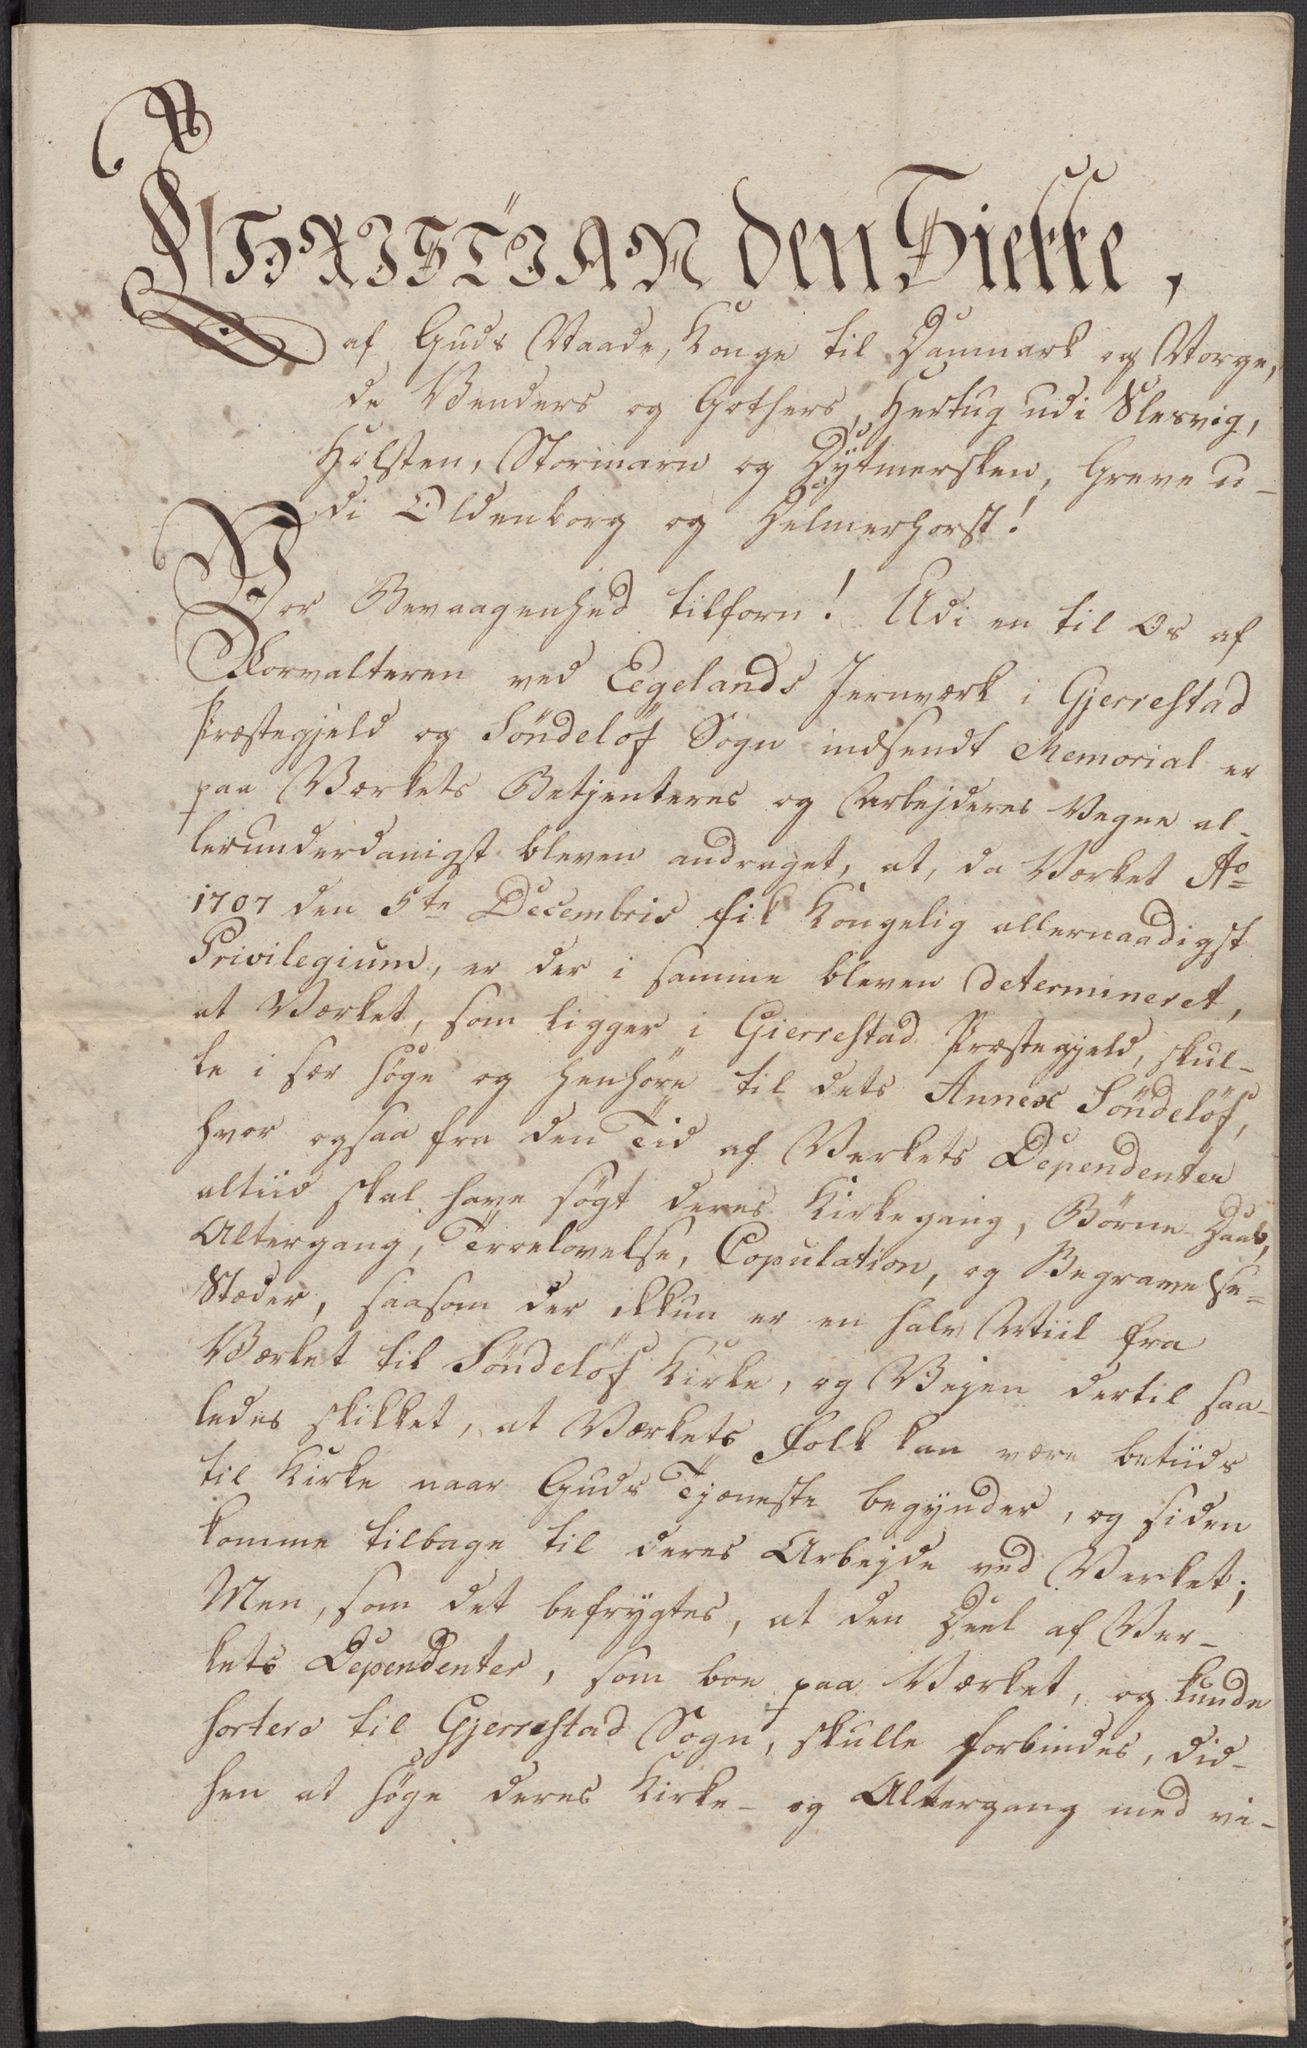 CHRISTIAN den Siette,
af Guds Naade, Konge til Danmark og Norge,
de Venders og Gothers, Hertug udi Slesvig,
Holsten, Stormarn og Dytmersken, Greve u-
di Oldenborg og Delmenhorst!
Vor Bevaagenhed tilforn! Udi en til Os af
Forvalteren ved Eegelands Jernværk i Gjerrestad
Præstegjeld og Söndelöf Sogn indsendt Memorial er
paa Værkets Betjenteres og Arbejderes Vegne al-
lerunderdanigst bleven andraget, at, da Værket Ao
1707 den 5te Decembris fik Kongelig allernaadigst
Privilegium, er der i samme bleven determineret,
at Værket, som ligger i Gierrestad Præstegjeld, skul-
le i sær søge og henhöre til dets Annex Söndelöf,
hvor ogsaa fra den Tid af Verkets Dependenter
altiid skal have søgt deres Kirkegang, Börne-Daab,
Altergang, Troelovelse, Copulation, og Begravelse-
Stæder, saasom der ikkun er en halv Miil fra
Værket til Söndelöf Kirke, og Vejen dertil saa-
ledes skikket, at Værkets Folk kan være betids
til Kirke naar Guds Tjeneste begynder, og siden
komme tilbage til deres Arbejde ved Verket;
Men, som det befrygtes, at den Deel af Ver-
kets Dependenter, som boe paa Værket, og kunde
sortere til Gjerrestad Sogn, skulle forbindes, did-
hen at søge deres Kirke- og Altergang med vi-